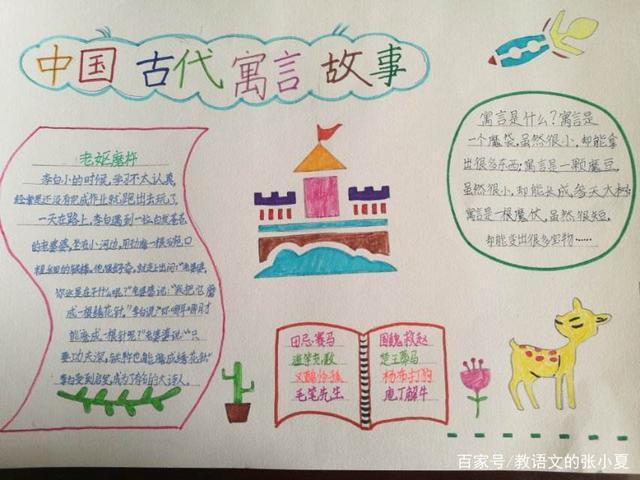 中国古代寓言故事
老妪磨杵
李白小的时候,学习不太认真,
经常是还没有完成作业就跑出去玩了
一天在路上,李白遇到一位白发苍苍
的老婆婆,坐在小河边,用劲磨一根
他很好奇,就走上问:"老婆婆,
你这是在干什么呢?"老婆婆说:"我把它磨
成一根绣花针。"李白说:
能磨成一根针呢?"老婆婆说:"只
要功夫深,铁杵也能磨成绣花针"
李白受到启发,成为了有名的大诗人。
寓言是什么?寓言是
一个魔袋,虽然很小,却能拿
出很多东西;寓言是一颗魔豆,
虽然很小,却能长成参天大树;
寓言是一根魔仗,虽然很短,
却能变出很多宝物……
田忌赛马
围魏救赵
楚王葬马
杨布打狗
毛笔先生
庖丁解牛
百家号/教语文的张小夏